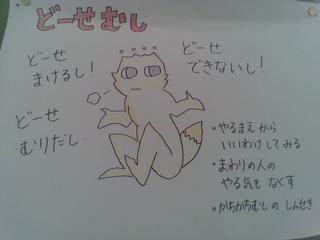 どーせむし
どーせ
まけるし!
どーせ
できないし!
どーせ
むりだし…
・やるまえから
いいわけしてみる
・まわりの人の
やる気も なくす
・かちかちむしの しんせき